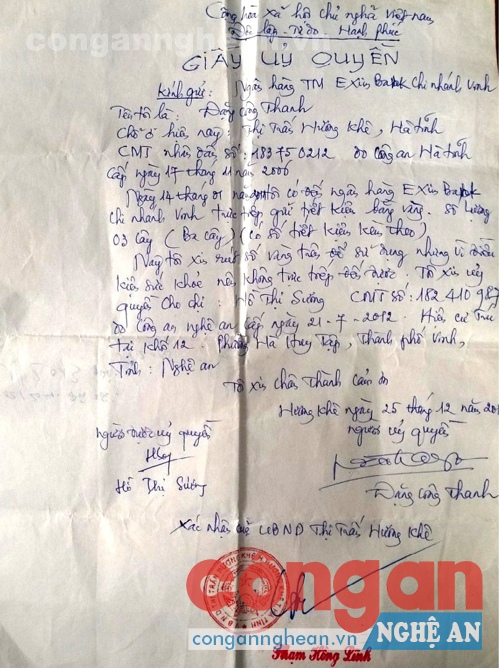 Cộng hòa xã hội chủ nghĩa Việt nam
congannghean.vn
Độc lập - Tự do Hạnh phúc
GIẤY UỶ QUYỀN
Kính gửi: Ngân hàng TM EXim Bank chi nhánh Vinh
Tên tôi là: Đặng Công Thanh
Chỗ ở hiện nay: Thị Trấn Hương Khê, Hà Tĩnh
CMT nhân dân số: 183750212 do công an Hà Tĩnh
Cấp ngày 17 tháng 11 năm 2006
Ngày 14 tháng 01 tôi có đến ngân hàng EXim Bank
chi nhánh Vinh trực tiếp gửi tiết kiệm bằng vàng. Số lượng
03 cây (Ba cây) (có sổ tiết kiệm kèm theo)
Nay tôi xin rút số vàng trên để sử dụng nhưng vì điều
kiện sức khoẻ nên không trực tiếp đến được. Tôi xin uỷ
quyền cho chị: Hồ Thị Sương CMT số: 182410987
do công an nghệ an cấp ngày 21-7-2012. Hiện cư trú
tại khối 12. Phường Hà Huy Tập, Thành phố Vinh,
Tỉnh: Nghệ an
Tôi xin chân thành cảm ơn
Hương Khê ngày 25 tháng 12 năm
người được uỷ quyền
người uỷ quyền
Hồ Thị Sương
Đặng Công Thanh
Xác nhận của UBND Thị Trấn Hương Khê
congan
NGHỆ AN
congannghean.vn
Phạm Hồng Lĩnh